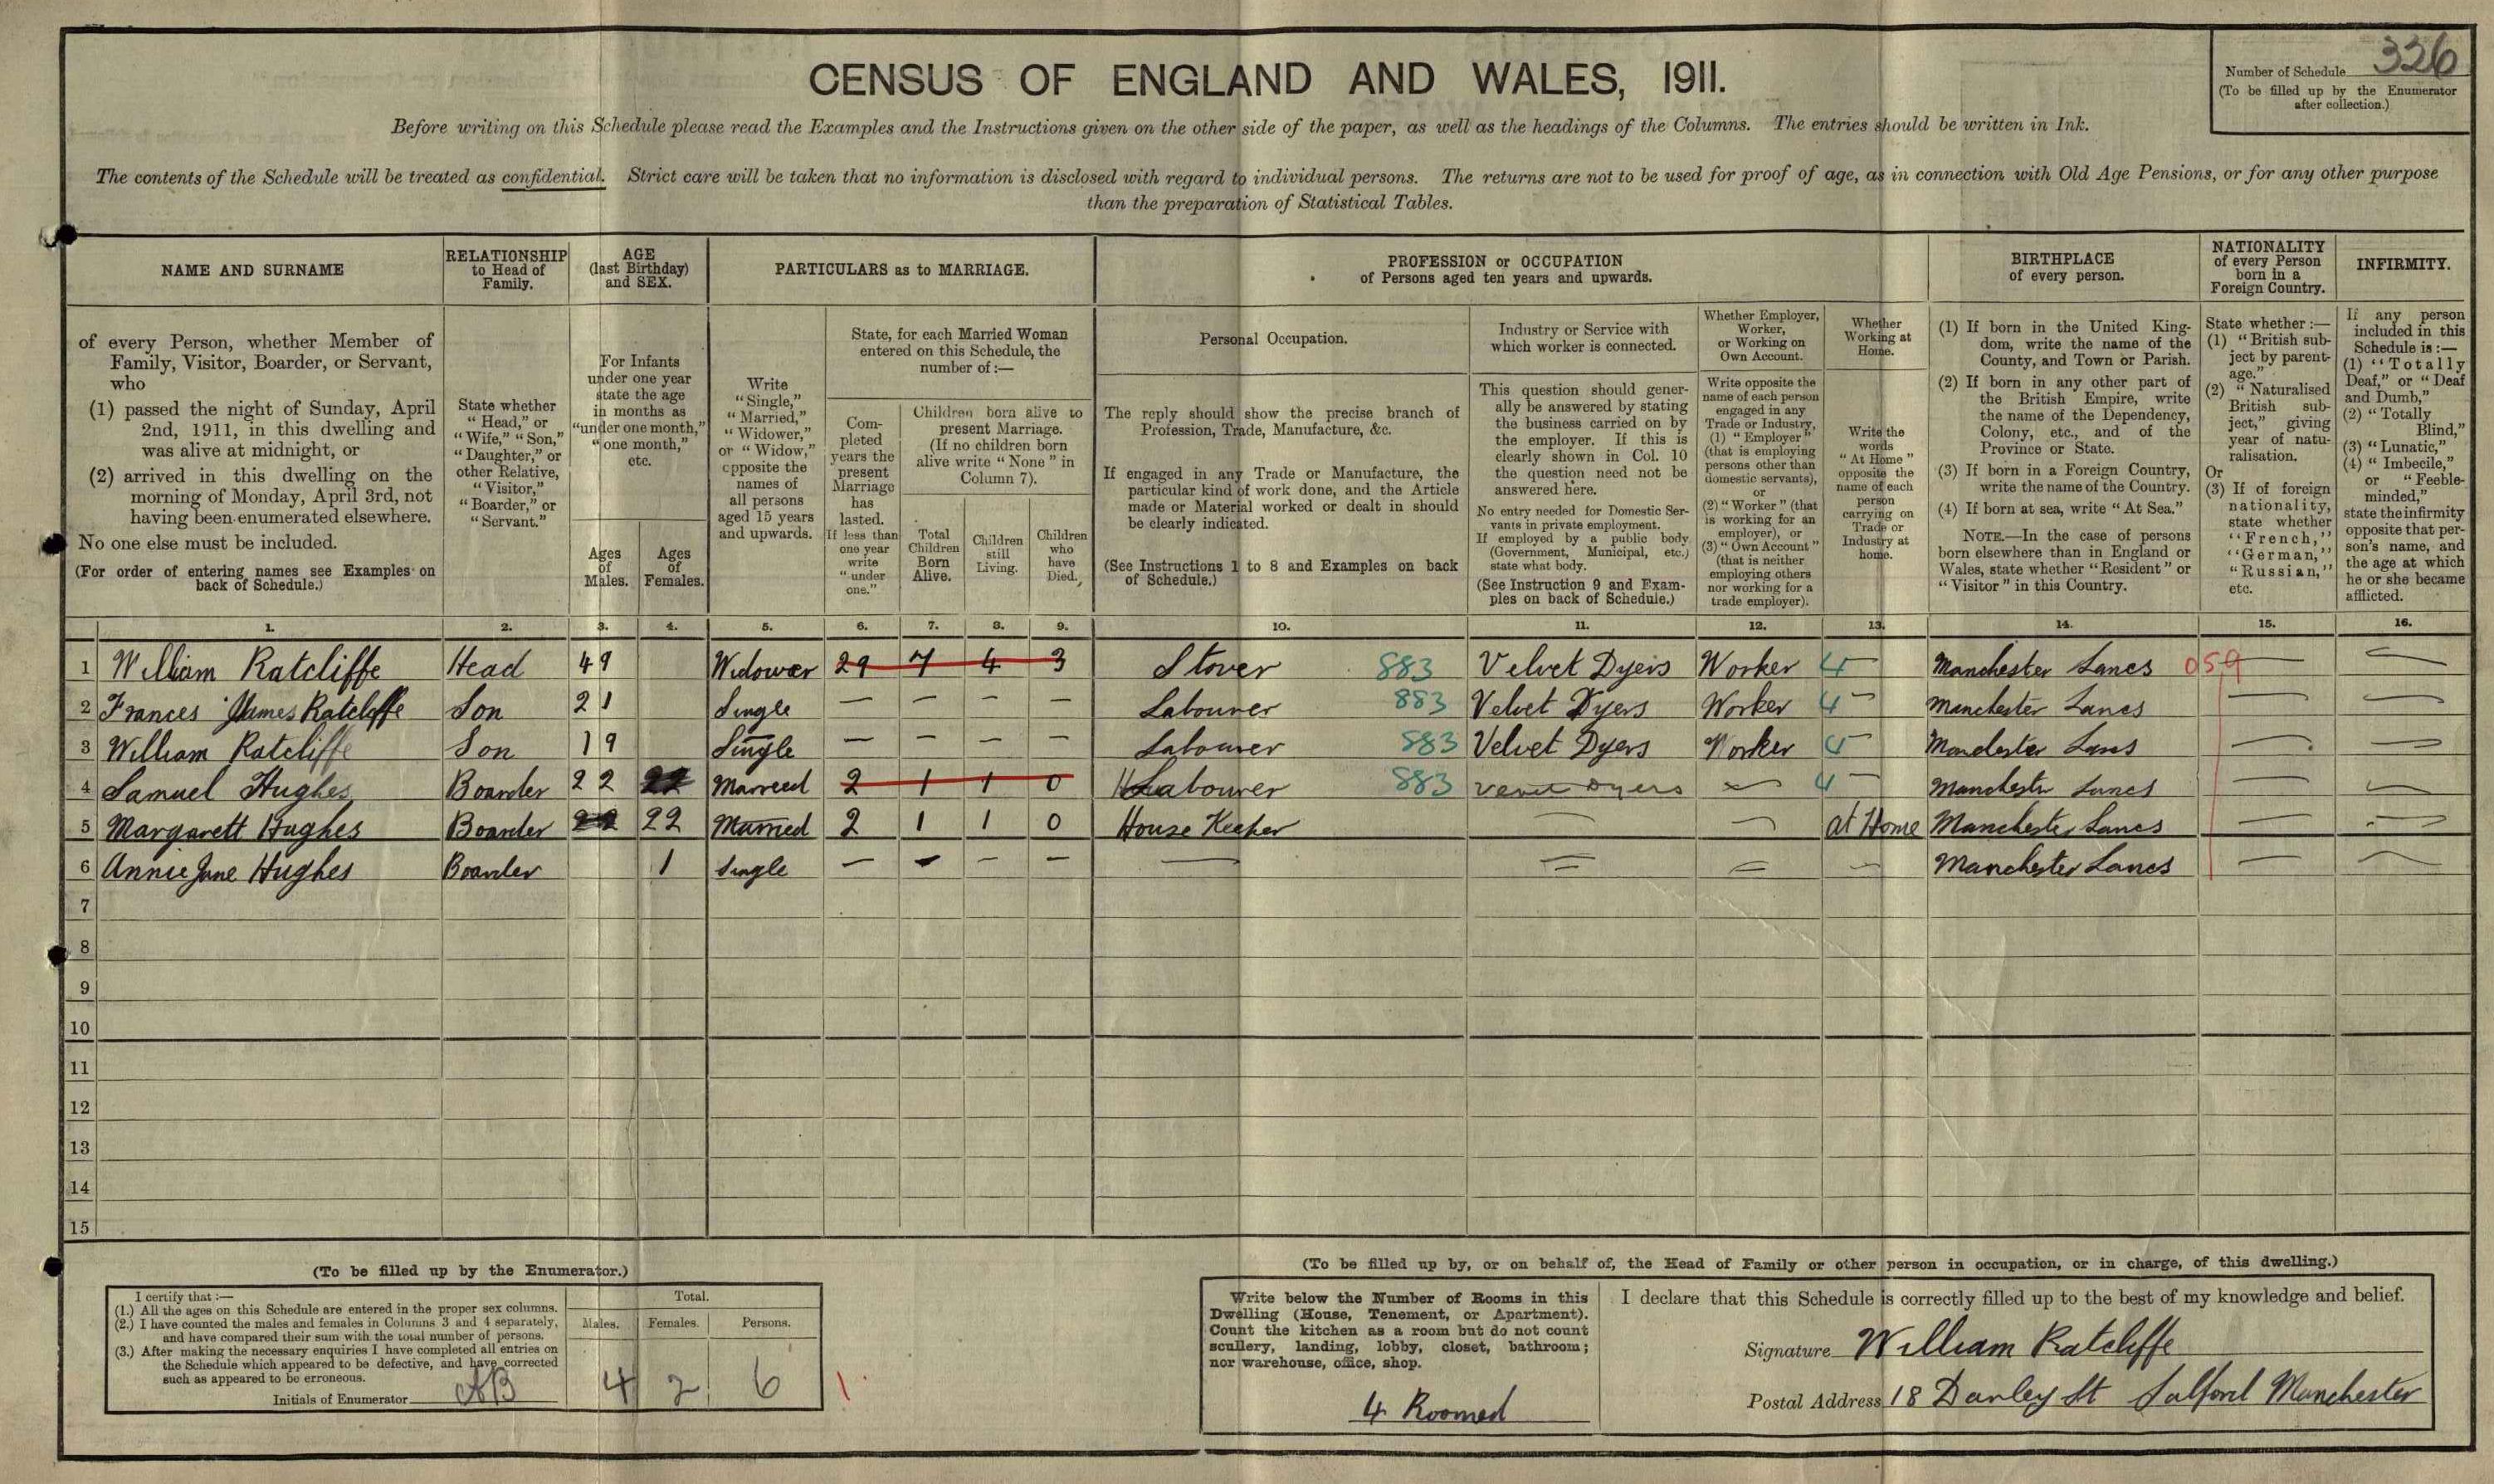 Number of Schedule 326
(To be filled up by the Enumerator
after collection.)
CENSUS OF ENGLAND AND WALES, 1911.
Before writing on this Schedule please read the Examples and the Instructions given on the other side of the paper, as well as the headings of the Columns. The entries should be written in Ink.
The contents of the Schedule will be treated as confidential. Strict care will be taken that no information is disclosed with regard to individual persons. The returns are not to be used for proof of age, as in connection with Old Age Pensions, or for any other purpose
than the preparation of Statistical Tables.
NAME AND SURNAME
of every Person, whether Member of
Family, Visitor, Boarder, or Servant,
who
(1) passed the night of Sunday, April
2nd, 1911, in this dwelling and
was alive at midnight, or
(2) arrived in this dwelling on the
morning of Monday, April 3rd, not
having been enumerated elsewhere.
No one else must be included.
(For order of entering names see Examples on
back of Schedule.)
RELATIONSHIP
to Head of
Family.
State whether
"Head," or
"Wife," "Son,"
"Daughter," or
other Relative,
"Visitor,"
"Boarder," or
"Servant."
AGE
(last Birthday)
and SEX.
For Infants
under one year
state the age
in months as
"under one month,"
"one month,"
etc.
Ages
of
Males.
Ages
of
Females.
PARTICULARS as to MARRIAGE.
Write
"Single,"
"Married,"
"Widower,"
or "Widow,"
opposite the
names of
all persons
aged 15 years
and upwards.
State, for each Married Woman
entered on this Schedule, the
number of :—
Com-
pleted
years the
present
Marriage
has
lasted.
If less than
one year
write
"under
one."
Children born alive to
present Marriage.
(If no children born
alive write "None" in
Column 7).
Total
Children
Born
Alive.
Children
still
Living.
Children
who
have
Died.
PROFESSION or OCCUPATION
of Persons aged ten years and upwards.
Personal Occupation.
The reply should show the precise branch of
Profession, Trade, Manufacture, &c.
If engaged in any Trade or Manufacture, the
particular kind of work done, and the Article
made or Material worked or dealt in should
be clearly indicated.
(See Instructions 1 to 8 and Examples on back
of Schedule.)
Industry or Service with
which worker is connected.
This question should gener-
ally be answered by stating
the business carried on by
the employer. If this is
clearly shown in Col. 10
the question need not be
answered here.
No entry needed for Domestic Ser-
vants in private employment.
If employed by a public body
(Government, Municipal, etc.)
state what body.
(See Instruction 9 and Exam-
ples on back of Schedule.)
Whether Employer,
Worker,
or Working on
Own Account.
Write opposite the
name of each person
engaged in any
Trade or Industry,
(1) "Employer"
(that is employing
persons other than
domestic servants),
or
(2) "Worker" (that
is working for an
employer), or
(3) "Own Account"
(that is neither
employing others
nor working for a
trade employer).
Whether
Working at
Home.
Write the
words
"At Home"
opposite the
name of each
person
carrying on
Trade or
Industry at
home.
BIRTHPLACE
of every person.
(1) If born in the United King-
dom, write the name of the
County, and Town or Parish.
(2) If born in any other part of
the British Empire, write
the name of the Dependency,
Colony, etc., and of the
Province or State.
(3) If born in a Foreign Country,
write the name of the Country.
(4) If born at sea, write "At Sea."
NOTE.—In the case of persons
born elsewhere than in England or
Wales, state whether "Resident" or
"Visitor" in this Country.
NATIONALITY
of every Person
born in a
Foreign Country.
State whether :—
(1) "British sub-
ject by parent-
age."
(2) "Naturalised
British sub-
ject," giving
year of natu-
ralisation.
Or
(3) If of foreign
nationality,
state whether
"French,"
"German,"
"Russian,"
etc.
INFIRMITY.
If any person
included in this
Schedule is :—
(1) "Totally
Deaf," or "Deaf
and Dumb,"
(2) "Totally
Blind,"
(3) "Lunatic,"
(4) "Imbecile,"
or "Feeble-
minded,"
state the infirmity
opposite that per-
son's name, and
the age at which
he or she became
afflicted.
1. 2. 3. 4. 5. 6. 7. 8. 9. 10. 11. 12. 13. 14. 15. 16.
1 William Ratcliffe Head 49 Widower 29 7 4 3 Stover 883 Velvet Dyers Worker 4 — Manchester Lancs 059 — —
2 Frances James Ratcliffe Son 21 Single — — — — Labourer 883 Velvet Dyers Worker 4 — Manchester Lancs — —
3 William Ratcliffe Son 19 Single — — — — Labourer 883 Velvet Dyers Worker 4 — Manchester Lancs — —
4 Samuel Hughes Boarder 22 22 Married 2 1 1 0 Labourer 883 Velvet Dyers — 4 — Manchester Lancs — —
5 Margarett Hughes Boarder 22 22 Married 2 1 1 0 House Keeper — — at Home Manchester Lancs — —
6 Annie Jane Hughes Boarder 1 Single — — — — — — — — Manchester Lancs — —
7
8
9
10
11
12
13
14
15
(To be filled up by the Enumerator.)
I certify that :—
(1.) All the ages on this Schedule are entered in the proper sex columns.
(2.) I have counted the males and females in Columns 3 and 4 separately,
and have compared their sum with the total number of persons.
(3.) After making the necessary enquiries I have completed all entries on
the Schedule which appeared to be defective, and have corrected
such as appeared to be erroneous.
Initials of Enumerator AB
Total.
Males. Females. Persons.
4 2 6
(To be filled up by, or on behalf of, the Head of Family or other person in occupation, or in charge, of this dwelling.)
Write below the Number of Rooms in this
Dwelling (House, Tenement, or Apartment).
Count the kitchen as a room but do not count
scullery, landing, lobby, closet, bathroom;
nor warehouse, office, shop.
4 Roomed
I declare that this Schedule is correctly filled up to the best of my knowledge and belief.
Signature William Ratcliffe
Postal Address 18 Darley St Salford Manchester